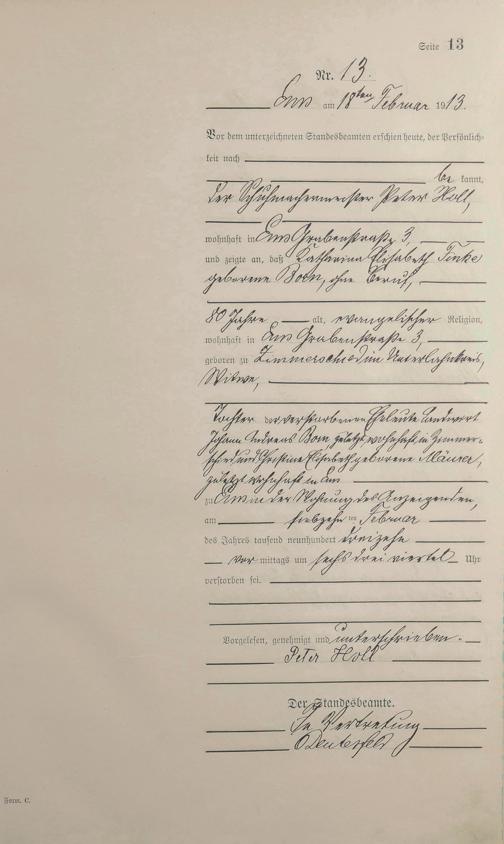 Seite 13
Nr. 13.
Ems am 18ten Februar 1913.
Vor dem unterzeichneten Standesbeamten erschien heute, der Persönlich-
keit nach
be kannt,
der Schuhmachermeister Peter Holl,
wohnhaft in Ems Grabenstraße 3,
und zeigte an, daß Katharina Elisabeth Finke
geborene Born, ohne Beruf,
80 Jahre alt, evangelischer Religion,
wohnhaft in Ems Grabenstraße 3,
geboren zu Zimmerschied im Unterlahnkreis,
Witwe,
Tochter der verstorbenen Eheleute Landwirt
Johann Andreas Born, zuletzt wohnhaft in Zimmer-
schied und Christine Elisabeth geborene Maurer,
zuletzt wohnhaft in Ems
zu Ems in der Wohnung des Anzeigenden,
am siebzehnten Februar
des Jahres tausend neunhundert dreizehn
vor mittags um sechs drei viertel Uhr
verstorben sei.
Vorgelesen, genehmigt und unterschrieben.
Peter Holl
Der Standesbeamte.
In Vertretung
Form. C.